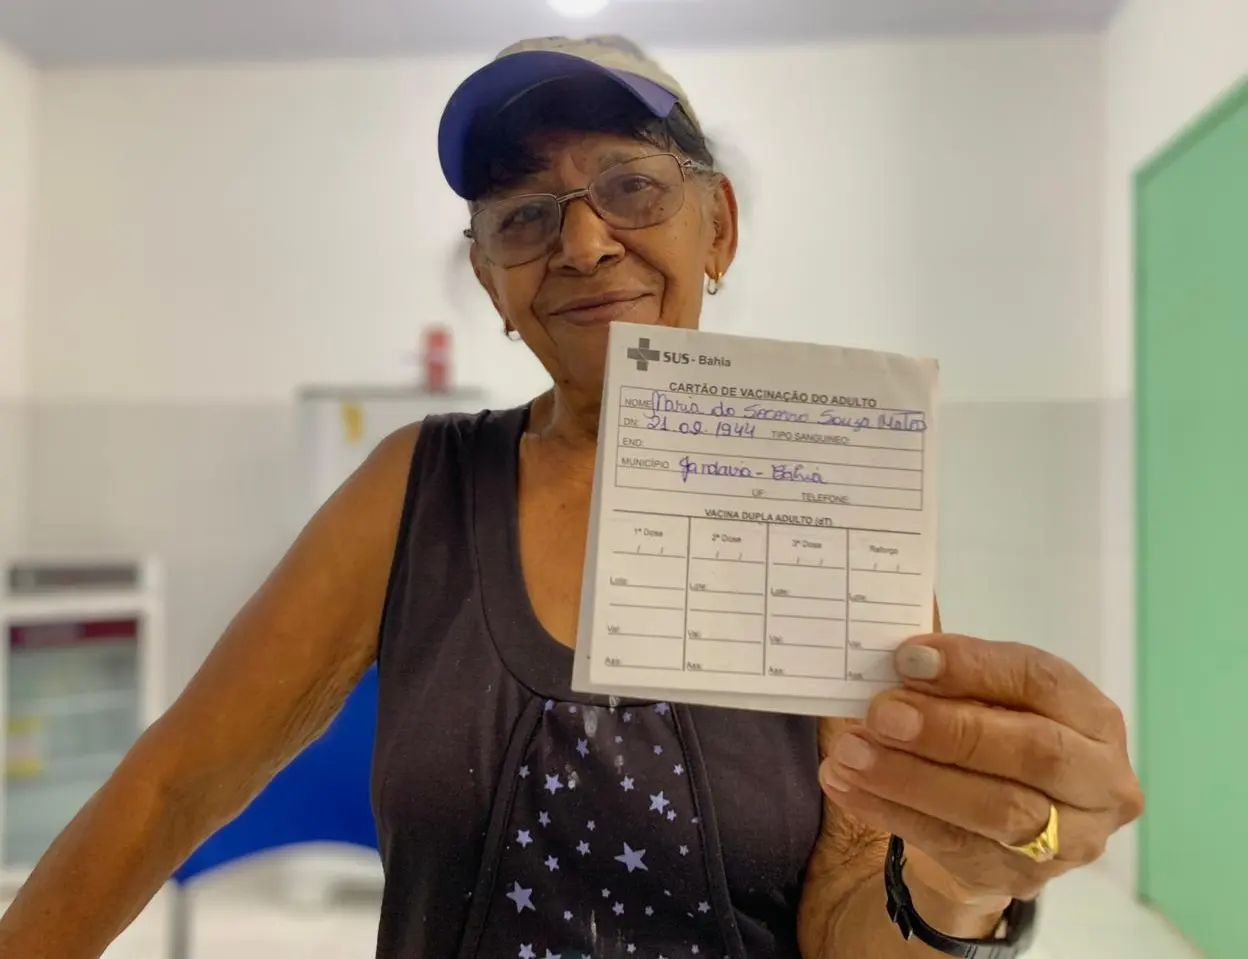 SUS - Bahia
CARTÃO DE VACINAÇÃO DO ADULTO
NOME Maria do Socorro Souza Matos
DN: 21.02.1944 TIPO SANGUINEO:
END:
MUNICÍPIO Jandaira - Bahia
UF: TELEFONE:
VACINA DUPLA ADULTO (dT)
1ª Dose 2ª Dose 3ª Dose Reforço
/ / / / / / / /
Lote: Lote: Lote: Lote:
Val: Val: Val: Val:
Ass: Ass: Ass: Ass: